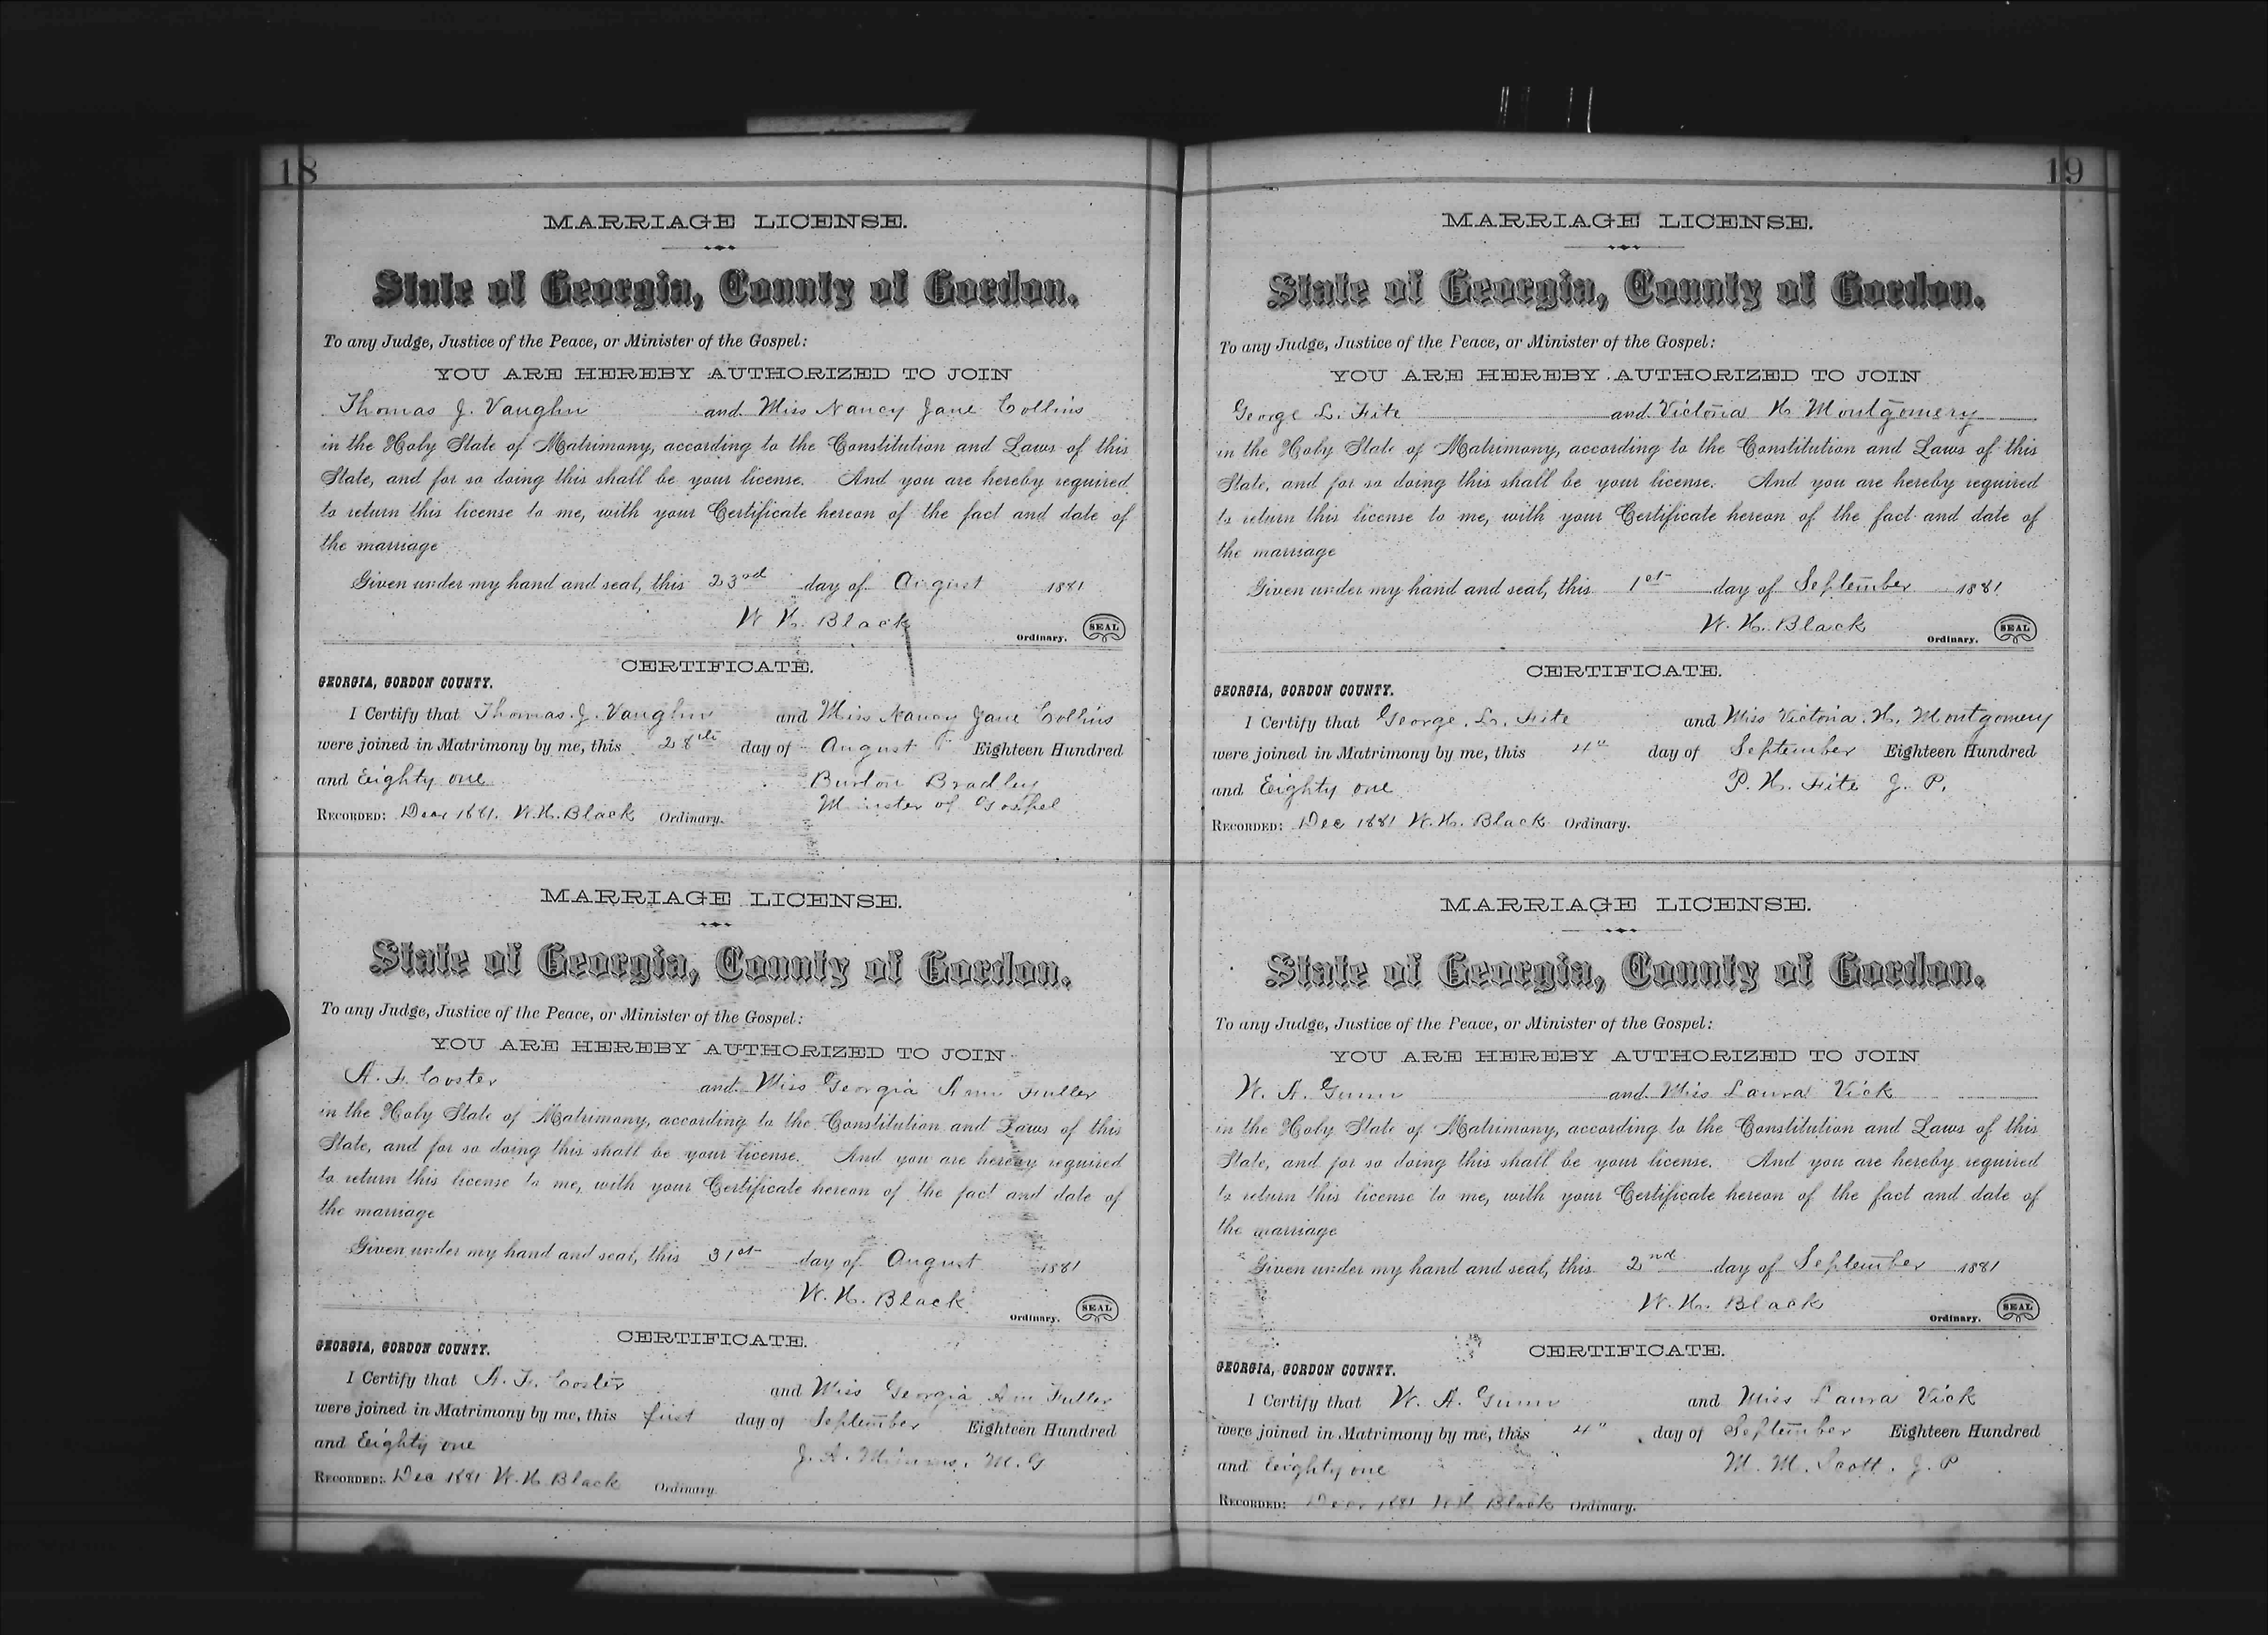 18
MARRIAGE LICENSE.
State of Georgia, County of Gordon.
To any Judge, Justice of the Peace, or Minister of the Gospel:
YOU ARE HEREBY AUTHORIZED TO JOIN
Thomas J. Vaughn and Miss Nancy Jane Collins
in the Holy State of Matrimony, according to the Constitution and Laws of this
State, and for so doing this shall be your license. And you are hereby required
to return this license to me, with your Certificate hereon of the fact and date of
the marriage
Given under my hand and seal, this 23rd day of August 1881
W. H. Black
Ordinary. SEAL
CERTIFICATE.
GEORGIA, GORDON COUNTY.
I Certify that Thomas J. Vaughn and Miss Nancy Jane Collins
were joined in Matrimony by me, this 28th day of August Eighteen Hundred
and Eighty one Burton Bradley
Minister of Gospel
RECORDED: Decr 1881. W. H. Black Ordinary.
MARRIAGE LICENSE.
State of Georgia, County of Gordon.
To any Judge, Justice of the Peace, or Minister of the Gospel:
YOU ARE HEREBY AUTHORIZED TO JOIN
A. F. Coster and Miss Georgia Ann Fuller
in the Holy State of Matrimony, according to the Constitution and Laws of this
State, and for so doing this shall be your license. And you are hereby required
to return this license to me, with your Certificate hereon of the fact and date of
the marriage
Given under my hand and seal, this 31st day of August 1881
W. H. Black
Ordinary. SEAL
CERTIFICATE.
GEORGIA, GORDON COUNTY.
I Certify that A. F. Coster and Miss Georgia Ann Fuller
were joined in Matrimony by me, this first day of September Eighteen Hundred
and Eighty one J. A. M. G
RECORDED: Dec 1881 W. H. Black Ordinary.
19
MARRIAGE LICENSE.
State of Georgia, County of Gordon.
To any Judge, Justice of the Peace, or Minister of the Gospel:
YOU ARE HEREBY AUTHORIZED TO JOIN
George L. Fite and Victoria H. Montgomery
in the Holy State of Matrimony, according to the Constitution and Laws of this
State, and for so doing this shall be your license. And you are hereby required
to return this license to me, with your Certificate hereon of the fact and date of
the marriage
Given under my hand and seal, this 1st day of September 1881
W. H. Black
Ordinary. SEAL
CERTIFICATE.
GEORGIA, GORDON COUNTY.
I Certify that George. L. Fite and Miss Victoria. H. Montgomery
were joined in Matrimony by me, this 4" day of September Eighteen Hundred
and Eighty one P. H. Fite J. P.
RECORDED: Dec 1881 W. H. Black Ordinary.
MARRIAGE LICENSE.
State of Georgia, County of Gordon.
To any Judge, Justice of the Peace, or Minister of the Gospel:
YOU ARE HEREBY AUTHORIZED TO JOIN
W. A. Gunn and Miss Laura Vick
in the Holy State of Matrimony, according to the Constitution and Laws of this
State, and for so doing this shall be your license. And you are hereby required
to return this license to me, with your Certificate hereon of the fact and date of
the marriage
Given under my hand and seal, this 2nd day of September 1881
W. H. Black
Ordinary. SEAL
CERTIFICATE.
GEORGIA, GORDON COUNTY.
I Certify that W. A. Gunn and Miss Laura Vick
were joined in Matrimony by me, this 4" day of September Eighteen Hundred
and Eighty one M. M. Scott. J. P
RECORDED: Decr 1881 W H Black Ordinary.